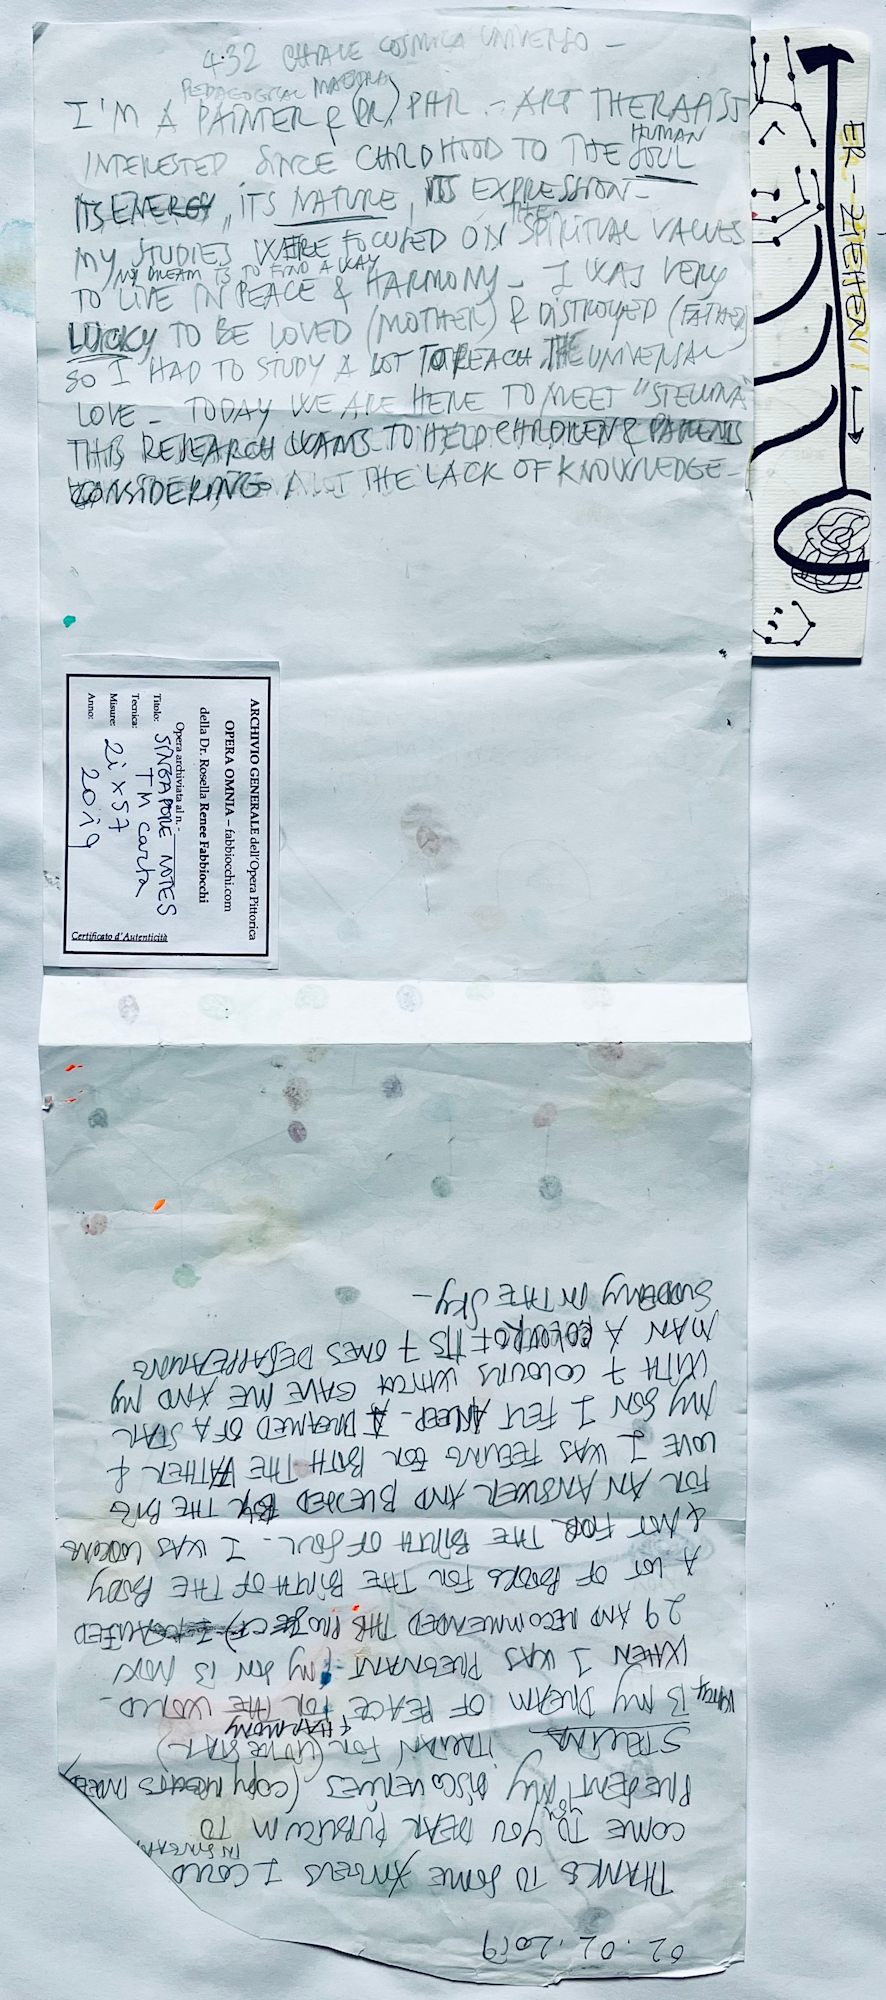 4.32 CHIAVE COSMICA UNIVERSO -
PEDAGOGICAL
I'M A PAINTER & (DR.) PHR. - ART THERAPIST
HUMAN
INTERESTED SINCE CHILDHOOD TO THE SOUL
ITS ENERGY, ITS NATURE, ITS EXPRESSION -
THE
MY STUDIES WERE FOCUSED ON SPIRITUAL VALUES
MY DREAM IS TO FIND A WAY
TO LIVE IN PEACE & HARMONY - I WAS VERY
LUCKY TO BE LOVED (MOTHER) & DISTROYED (FATHER)
SO I HAD TO STUDY A LOT TO REACH THE UNIVERSAL
LOVE - TODAY WE ARE HERE TO MEET "STELLINA"
THIS RESEARCH WANTS TO HELP CHILDREN & PARENTS
CONSIDERING A LOT THE LACK OF KNOWLEDGE -
ER-ZIEHEN!
ARCHIVIO GENERALE dell'Opera Pittorica
OPERA OMNIA – fabbiocchi.com
della Dr. Rosella Renee Fabbiocchi
Opera archiviata al n.
Titolo: SINGAPORE NOTES
Tecnica: TM carta
Misure: 21 x 57
Anno: 2019
Certificato d'Autenticità
02.02.2019
THANKS TO SOME ANGELS I COULD
IN SINGAPORE
COME TO YOU DEAR PUBLICUM TO
YOU
PRESENT MY DISCOVERIES (COPY RIGHTS INDEED)
STELLINA ITALIAN FOR (LITTLE STAR)
& HARMONY
WHICH IS MY DREAM OF PEACE FOR THE WORLD -
WHEN I WAS PREGNANT (MY SON IS NOW
29 AND RECOMMENDED THIS PROJECT)
A LOT OF BOOKS FOR THE BIRTH OF THE BODY
& NOT FOR THE BIRTH OF SOUL - I WAS LOOKING
FOR AN ANSWER AND BLESSED BY THE BIG
LOVE I WAS FEELING FOR BOTH THE FATHER &
MY SON I FELT ASLEEP - I DREAMED OF A STAR
WITH 7 COLOURS WHICH GAVE ME AND MY
MAN A COLOUR OF ITS 7 ONES DESAPPEARING
SUDDENLY IN THE SKY -